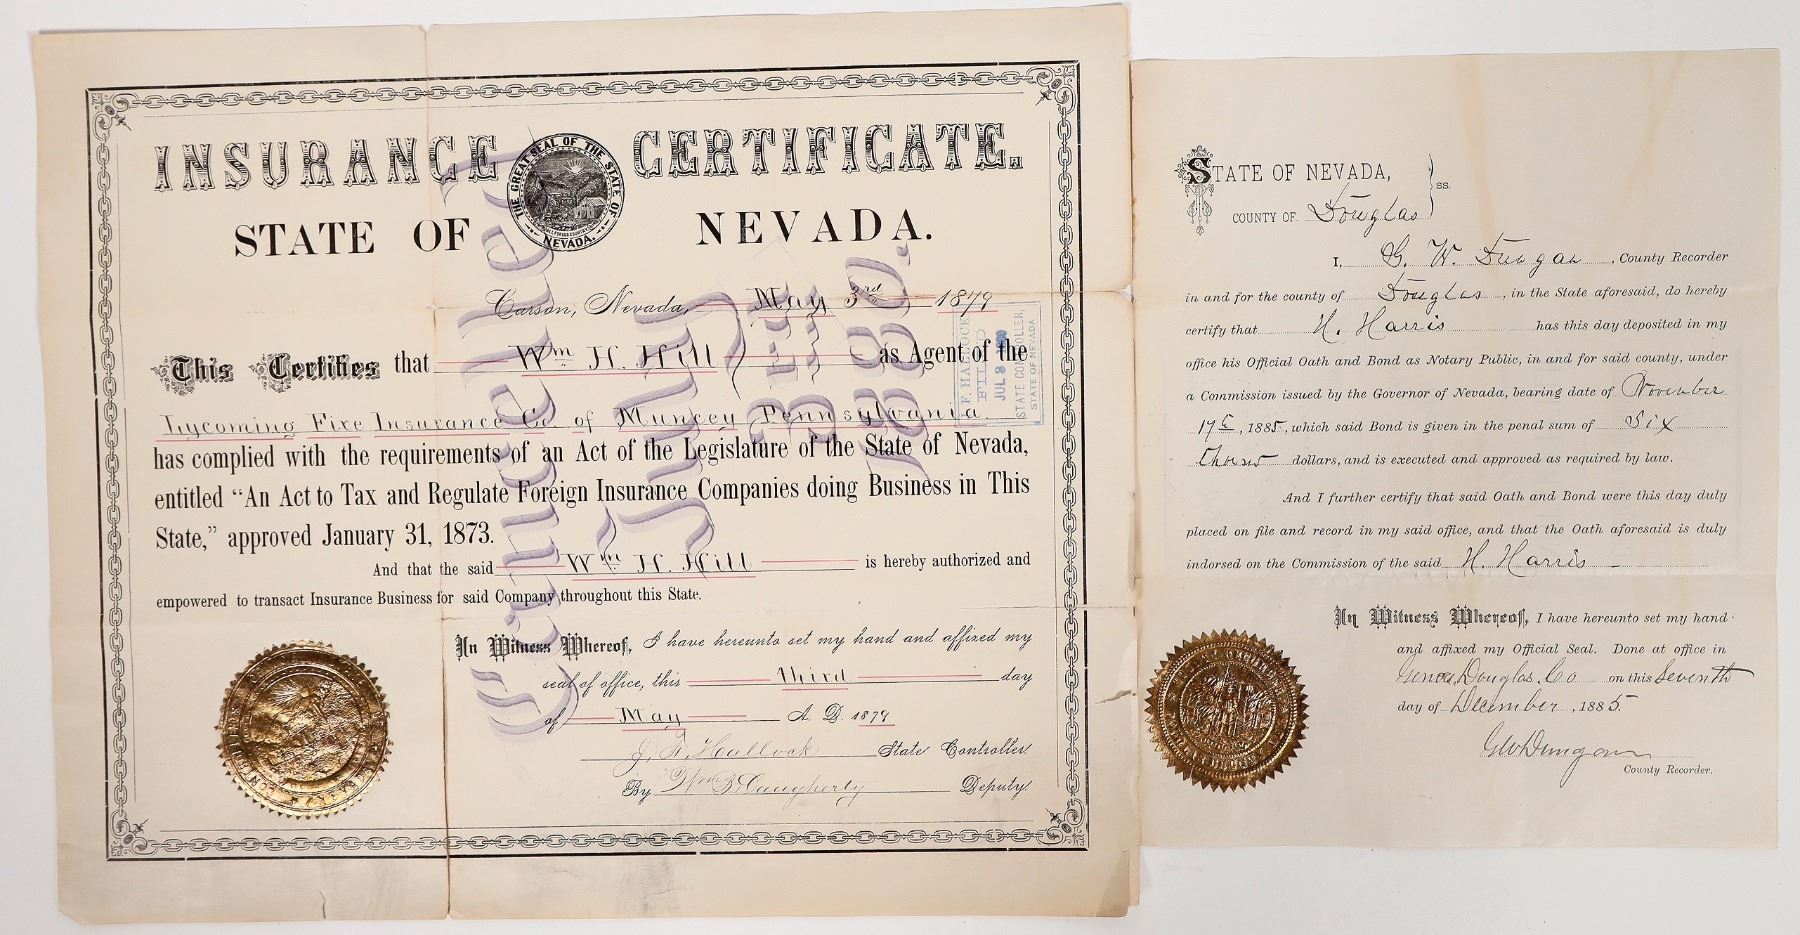 INSURANCE CERTIFICATE.
THE GREAT SEAL OF THE STATE OF NEVADA.
STATE OF NEVADA.
Carson, Nevada, May 3rd 1879
This Certifies that Wm H. Hill as Agent of the
Lycoming Fire Insurance Co of Muncey Pennsylvania.
has complied with the requirements of an Act of the Legislature of the State of Nevada,
entitled "An Act to Tax and Regulate Foreign Insurance Companies doing Business in This
State," approved January 31, 1873.
And that the said Wm H. Hill is hereby authorized and
empowered to transact Insurance Business for said Company throughout this State.
In Witness Whereof, I have hereunto set my hand and affixed my
seal of office, this third day
of May A. D. 1879
J. F. Hallock State Controller
By Wm Daugherty Deputy
Cancelled
July
8th
1880.
J. F. HALLOCK
FILED
JUL 8 1880
STATE CONTROLLER,
STATE OF NEVADA
STATE OF NEVADA,
COUNTY OF Douglas ss.
I, G. W. Dungan, County Recorder
in and for the county of Douglas, in the State aforesaid, do hereby
certify that H. Harris has this day deposited in my
office his Official Oath and Bond as Notary Public, in and for said county, under
a Commission issued by the Governor of Nevada, bearing date of November
17th, 1885, which said Bond is given in the penal sum of Six
Thous dollars, and is executed and approved as required by law.
And I further certify that said Oath and Bond were this day duly
placed on file and record in my said office, and that the Oath aforesaid is duly
indorsed on the Commission of the said H. Harris
In Witness Whereof, I have hereunto set my hand
and affixed my Official Seal. Done at office in
Genoa, Douglas Co on this Seventh
day of December, 1885.
G W Dungan
County Recorder.